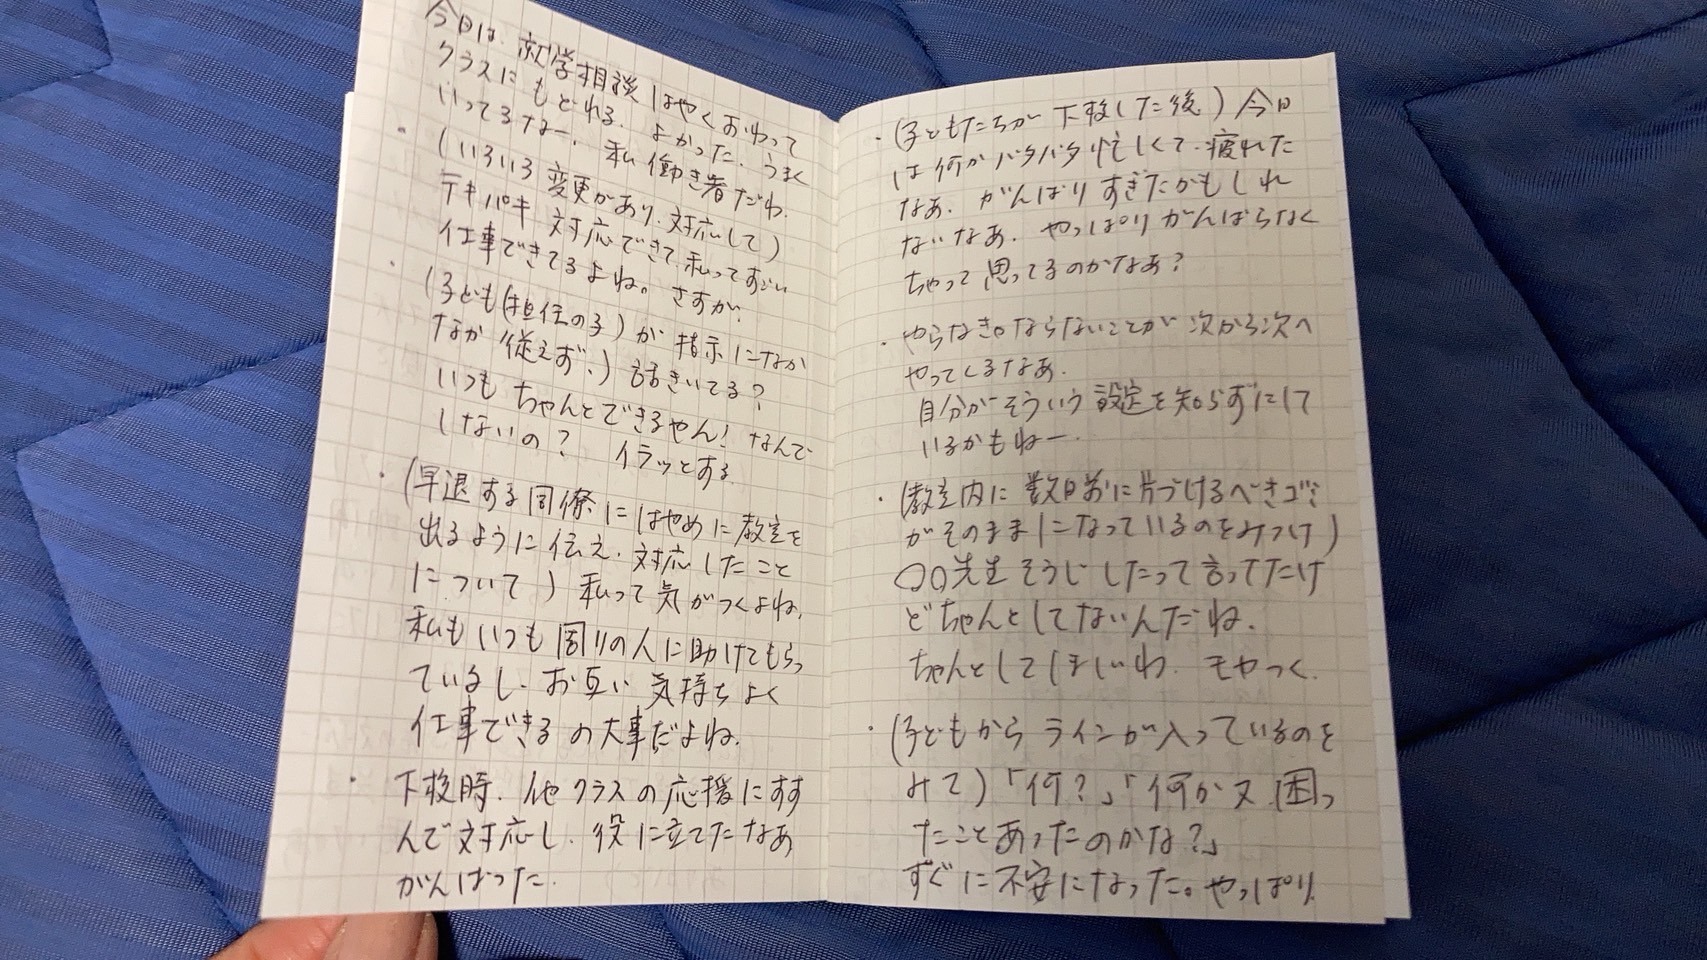 今日は、就学相談はやくおわって
クラスにもどれる。よかった。うまく
いってるなー。私働き者だわ。
・(いろいろ変更があり、対応して)
テキパキ対応できて、私ってすごい
仕事できてるよね。さすが。
・(子ども(担任の子)が指示になか
なか従えず、)話きいてる?
いつもちゃんとできるやん!なんで
しないの? イラッとする
・(早退する同僚にはやめに教室を
出るように伝え、対応したこと
について)私って気がつくよね。
私もいつも周りの人に助けてもらっ
ているし、お互い気持ちよく
仕事できるの大事だよね。
・下校時、他クラスの応援にすす
んで対応し、役に立てたなあ
がんばった。
・(子どもたちが下校した後)今日
は何かバタバタ忙しくて、疲れた
なあ。がんばりすぎたかもしれ
ないなあ。やっぱりがんばらなく
ちゃって思ってるのかなあ?
・やらなきゃならないことが次から次へ
やってくるなあ。
自分がそういう設定を知らずにして
いるかもねー。
・(教室内に数日前に片づけるべきゴミ
がそのままになっているのをみつけ)
〇〇先生そうじしたって言ってたけ
どちゃんとしてないんだね。
ちゃんとしてほしいわ。モヤつく。
・(子どもからラインが入っているのを
みて)「何?」「何か又困っ
たことあったのかな?」
すぐに不安になった。やっぱり